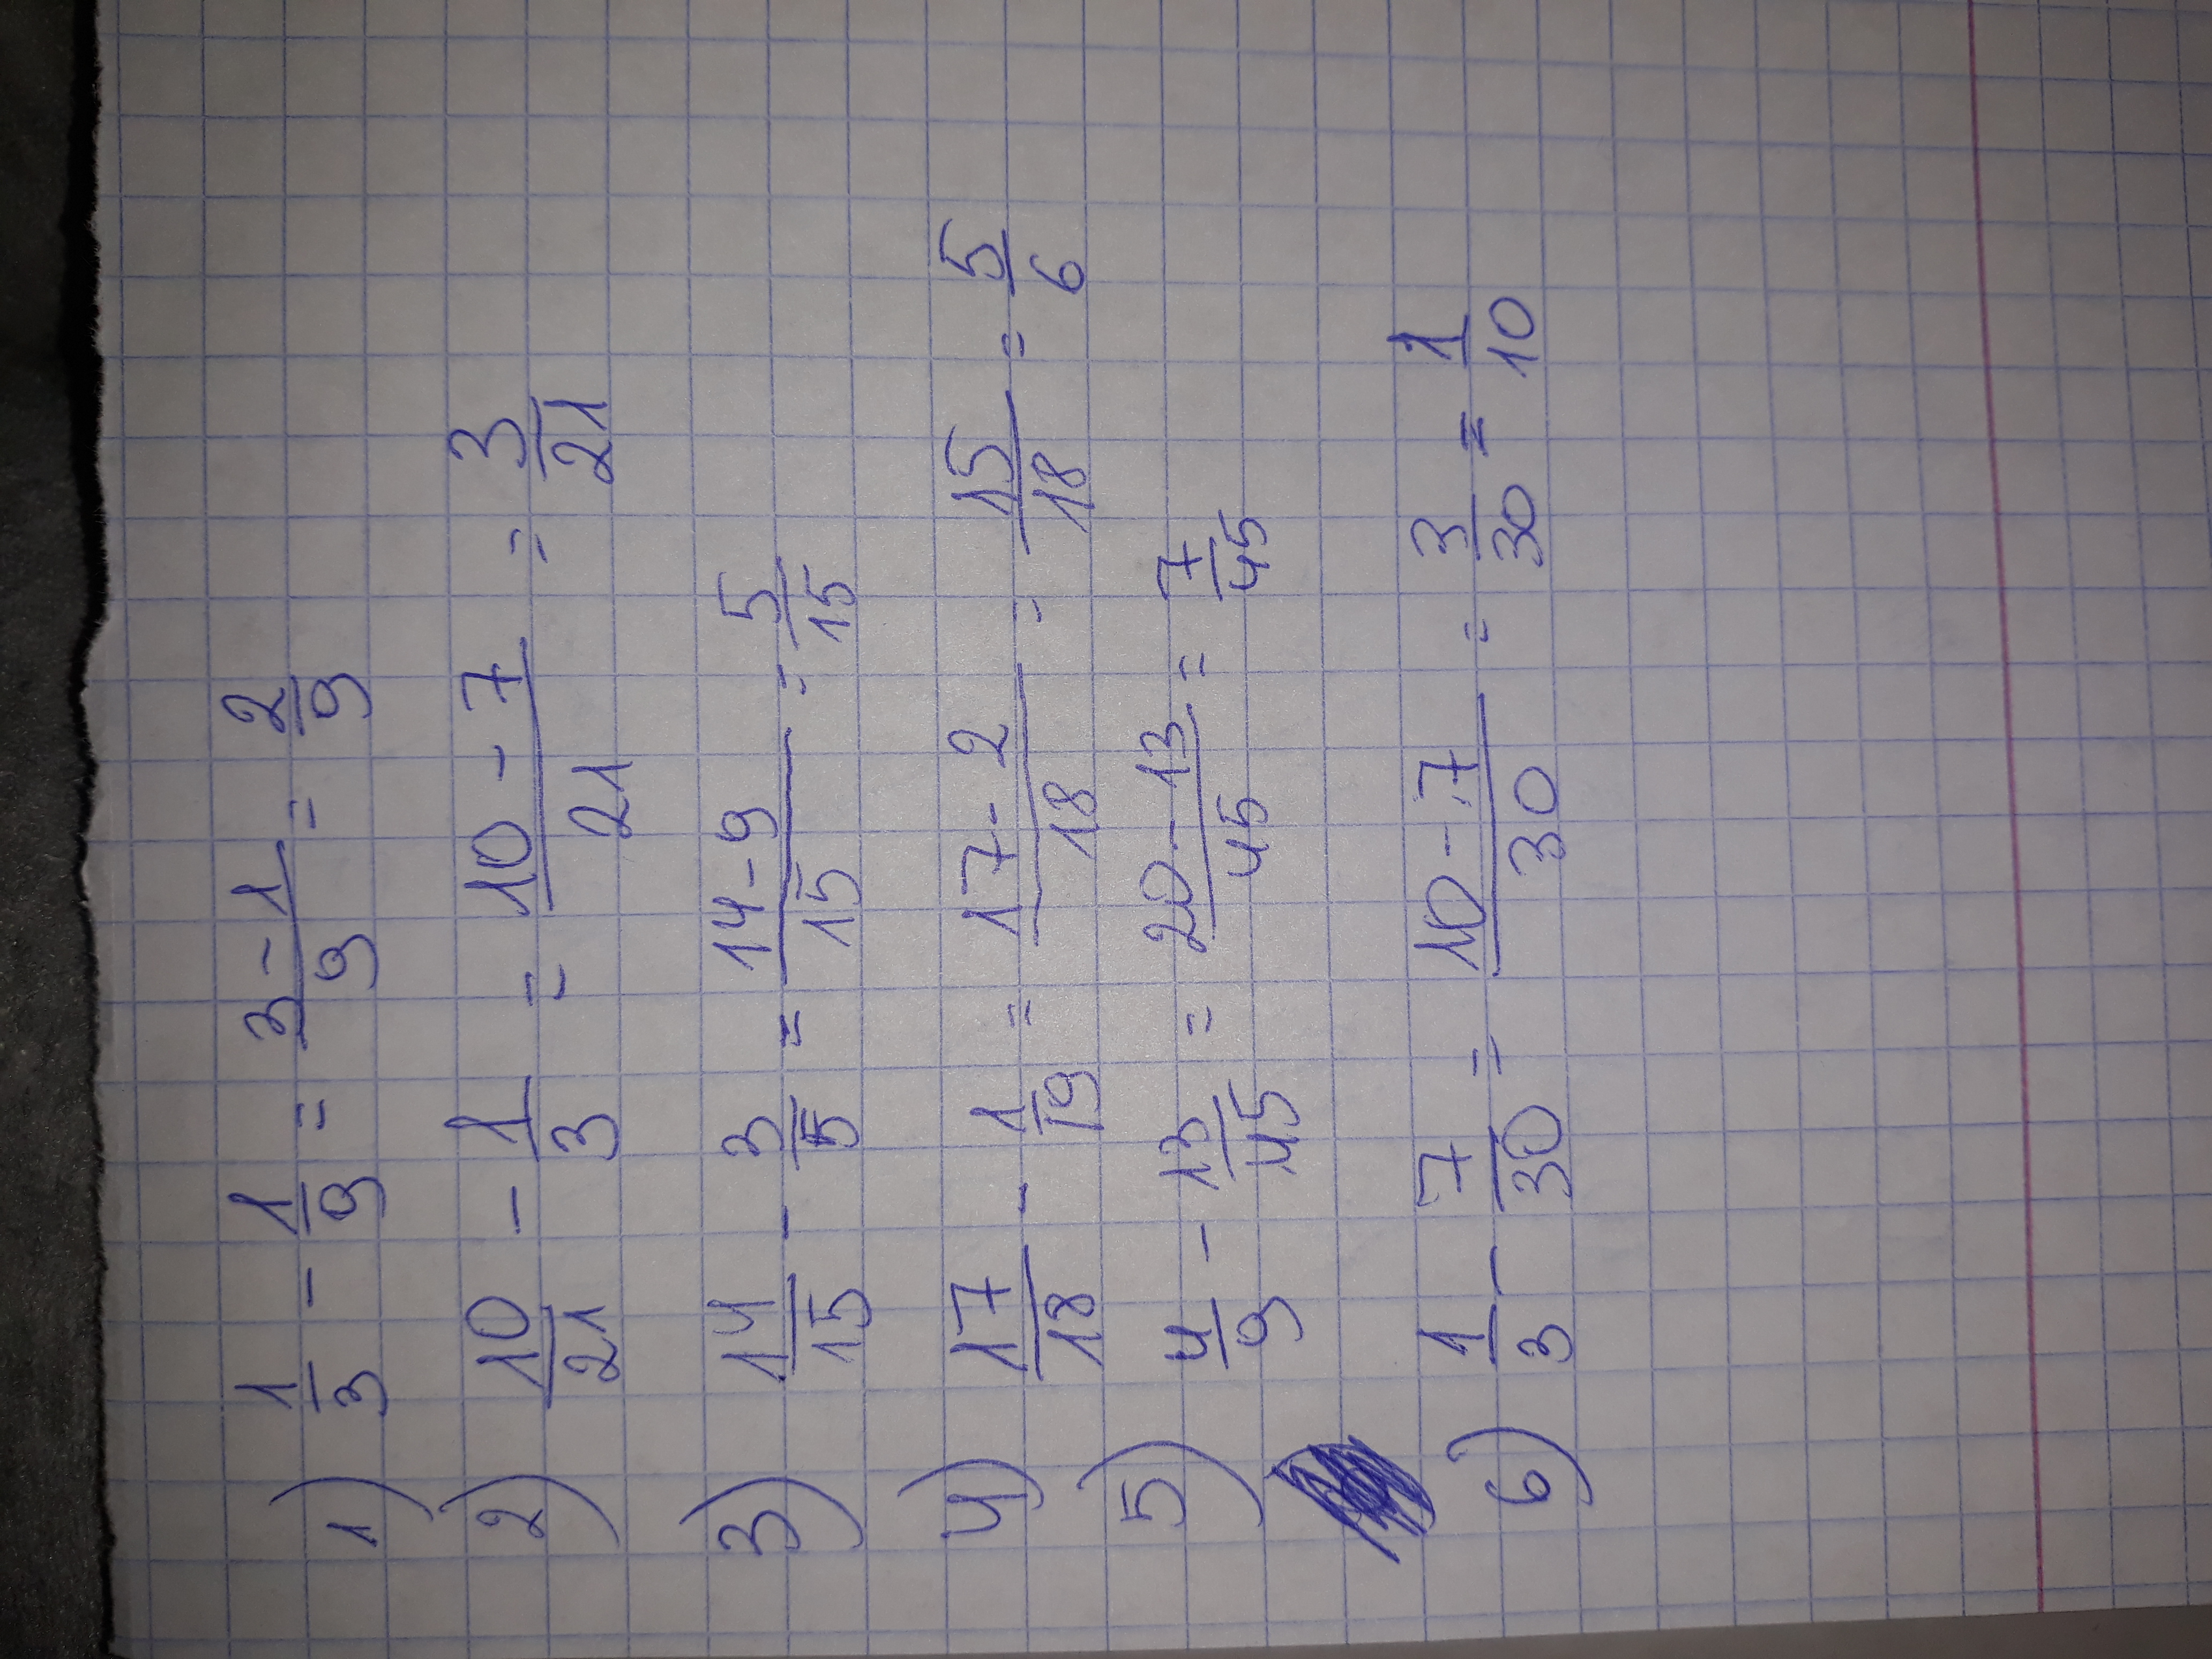 1) 1/3 - 1/9 = (3-1)/9 = 2/9
2) 10/21 - 1/3 = (10-7)/21 = 3/21
3) 14/15 - 3/5 = (14-9)/15 = 5/15
4) 17/18 - 1/19 = (17-2)/18 = 15/18 = 5/6
5) 4/9 - 13/45 = (20-13)/45 = 7/45
6) 1/3 - 7/30 = (10-7)/30 = 3/30 = 1/10